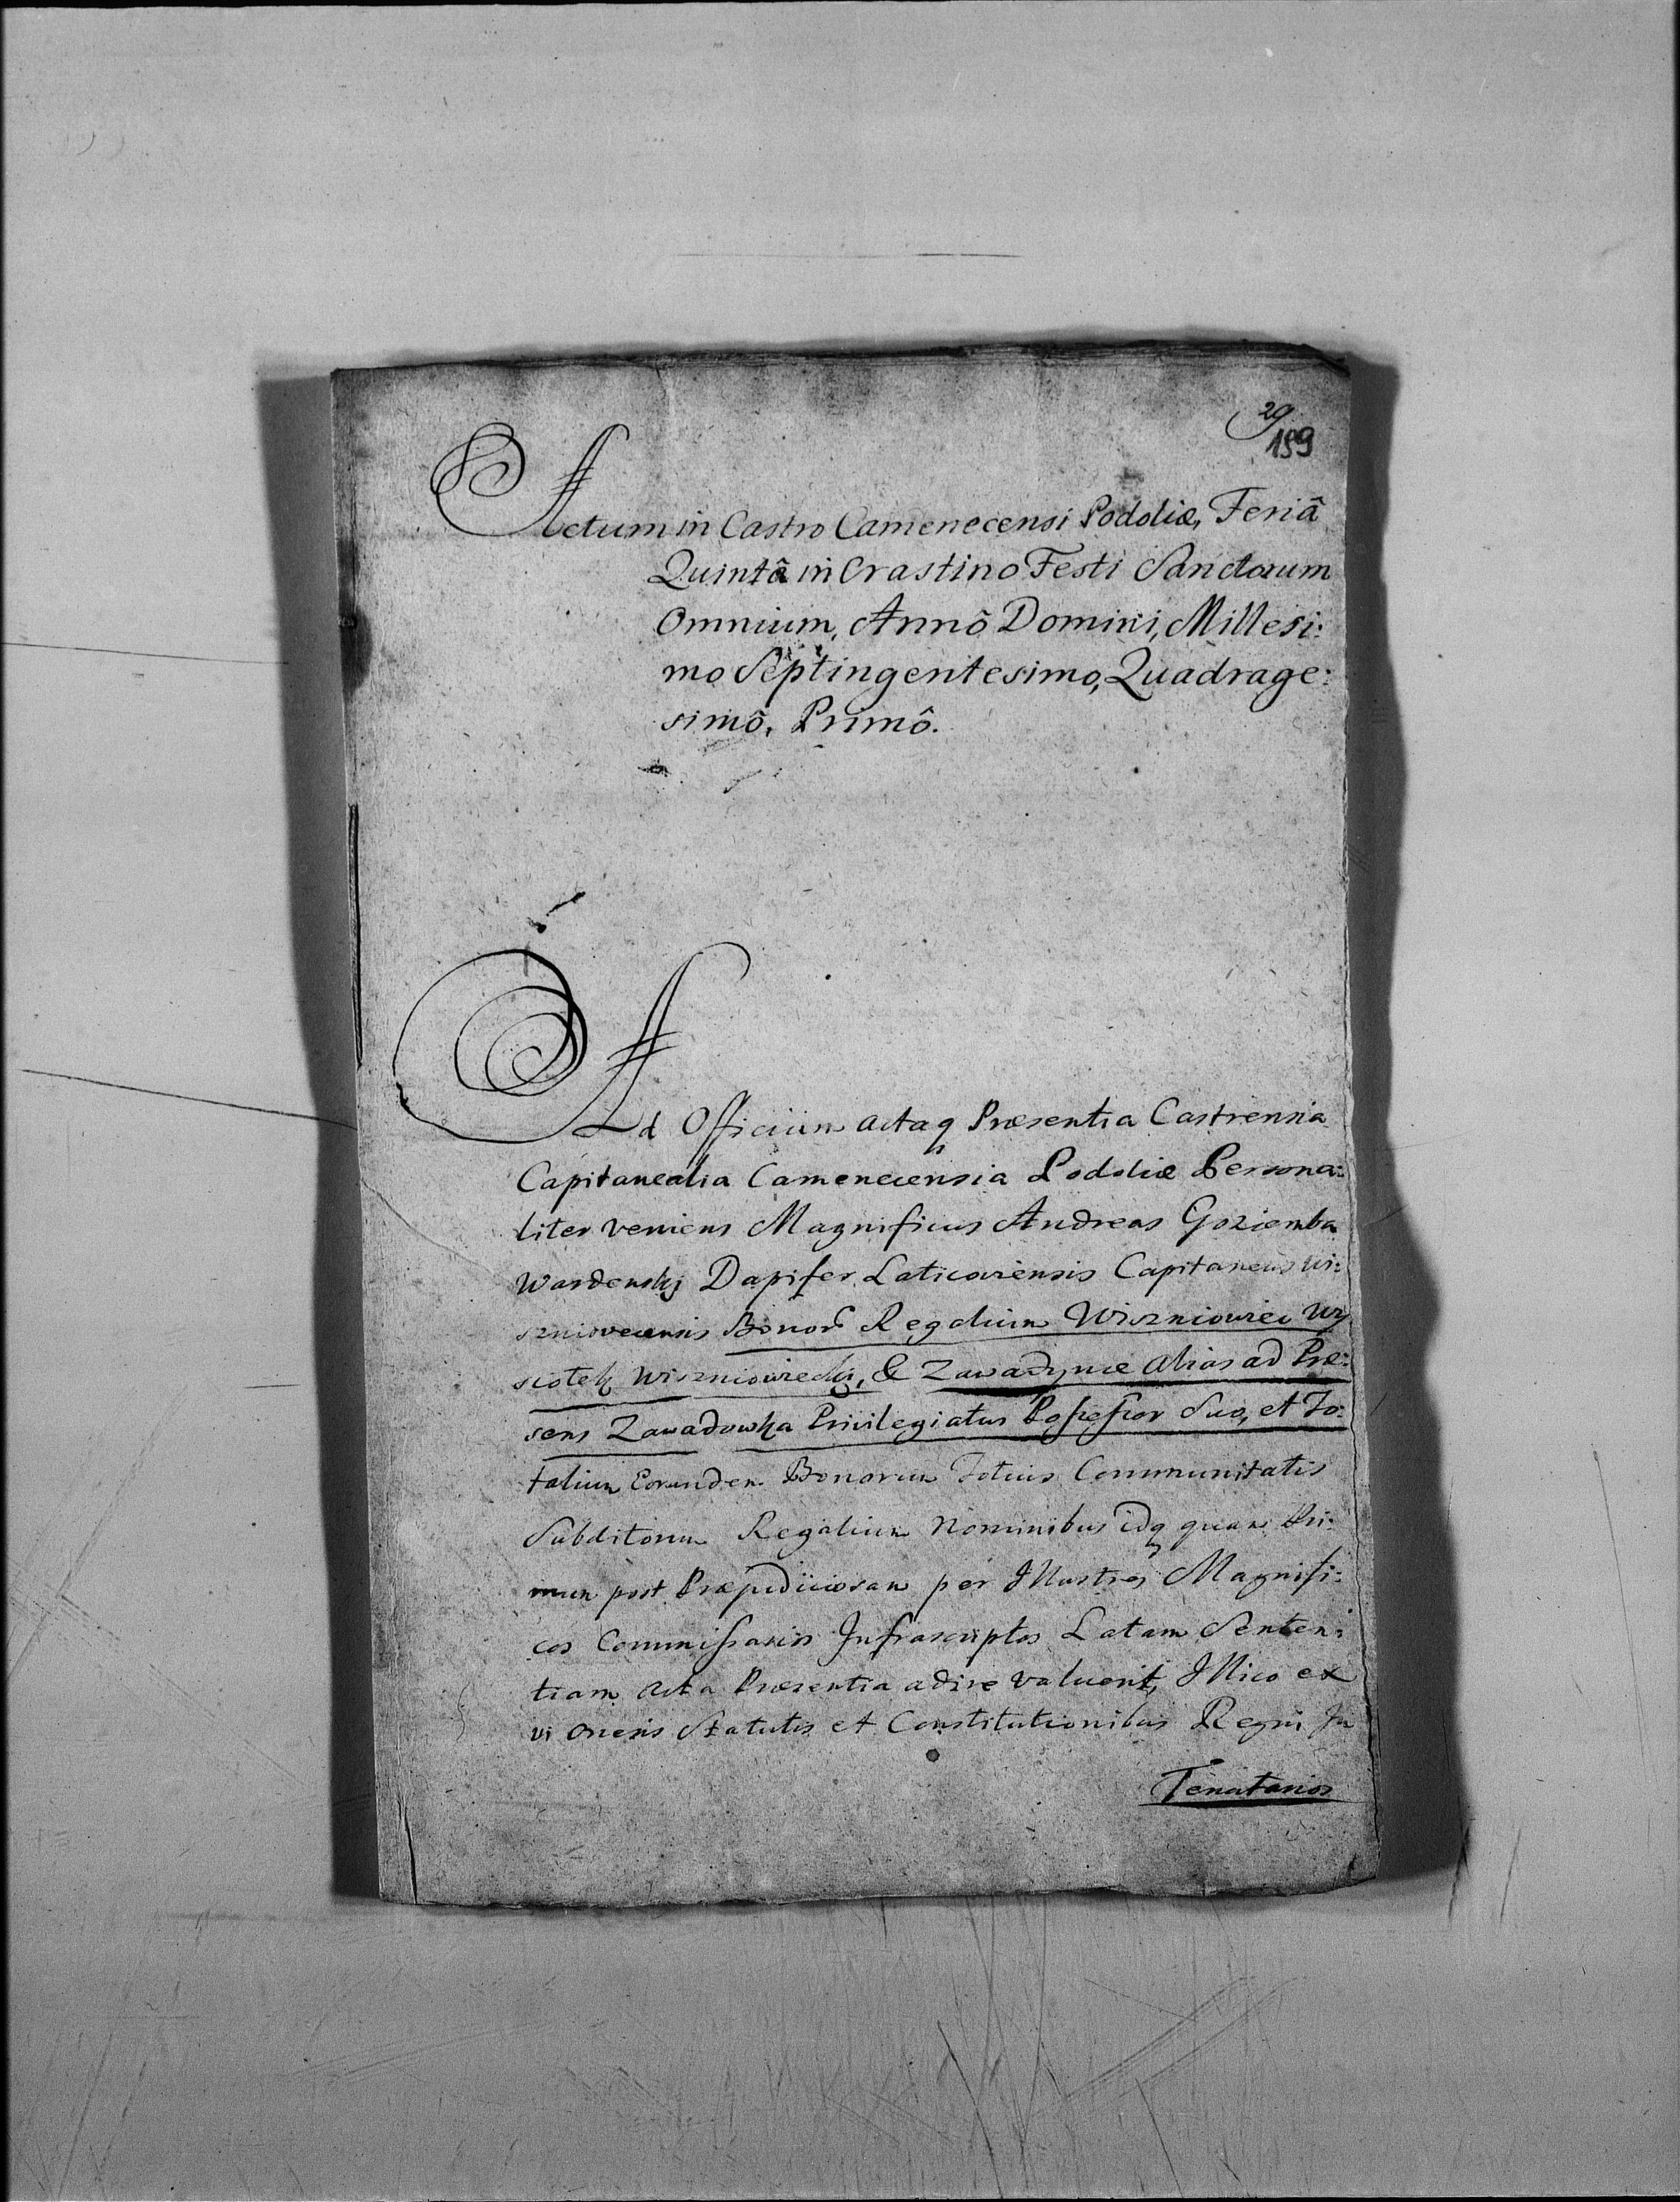 29
189
Actum in Castro Camenecensi Podoliæ, Feriâ
Quintâ in Crastino Festi Sanctorum
Omnium, Annô Domini, Millesi:
mo Septingentesimo, Quadrage:
simô, Primô.
Ad Officium actaq Præsentia Castrensia
Capitanealia Camenecensia Podoliæ Persona:
liter veniens Magnificus Andreas Goziemba
Wardenskj Dapifer Laticoviensis Capitaneus Wi:
szniovecensis Bonorũ Regalium Wiszniowiec Wy
siotek Wiszniowiecki, & Zawadynce alias ad Præ:
sens Zawadowka Privilegiatus Possessor Suo, et To:
talium Eorundem Bonorum Totius Communitatis
Subditorum Regalium Nominibus idq quam Pri:
mum post Præjudiciosam per Illustres Magnifi:
cos Commissarios Infrascriptos Latam Senten:
tiam acta Præsentia adire valuerit, Illico ex
vi oneris Statutis et Constitutionibus Regni In
Tenutarios